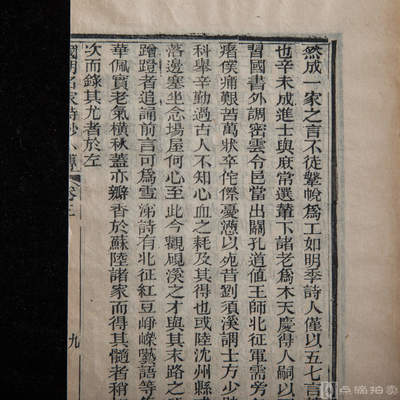 然成一家之言不徒鞶帨為工如明季詩人僅以五七言
也辛未成進士與庶常選輩下諸老為木天慶得人嗣以
習國書外調密雲令邑當出關孔道值王師北征軍需旁
瘏僕痛艱苦萬狀卒侘傺憂懣以死昔劉須溪調士方少
科舉辛勤過古人不知心血之耗及其得也或陸沈州縣
落邊塞坐念場屋何心至此今觀硯溪之才與其末路之
蹭蹬者追誦前言可為雪涕詩有北征紅豆崢嶸藝語等
華佩實老氣橫秋蓋亦瓣香於蘇陸諸家而得其髓者稍
次而錄其尤者於左
國朝名家詩鈔小傳 卷二 九
点滴拍卖